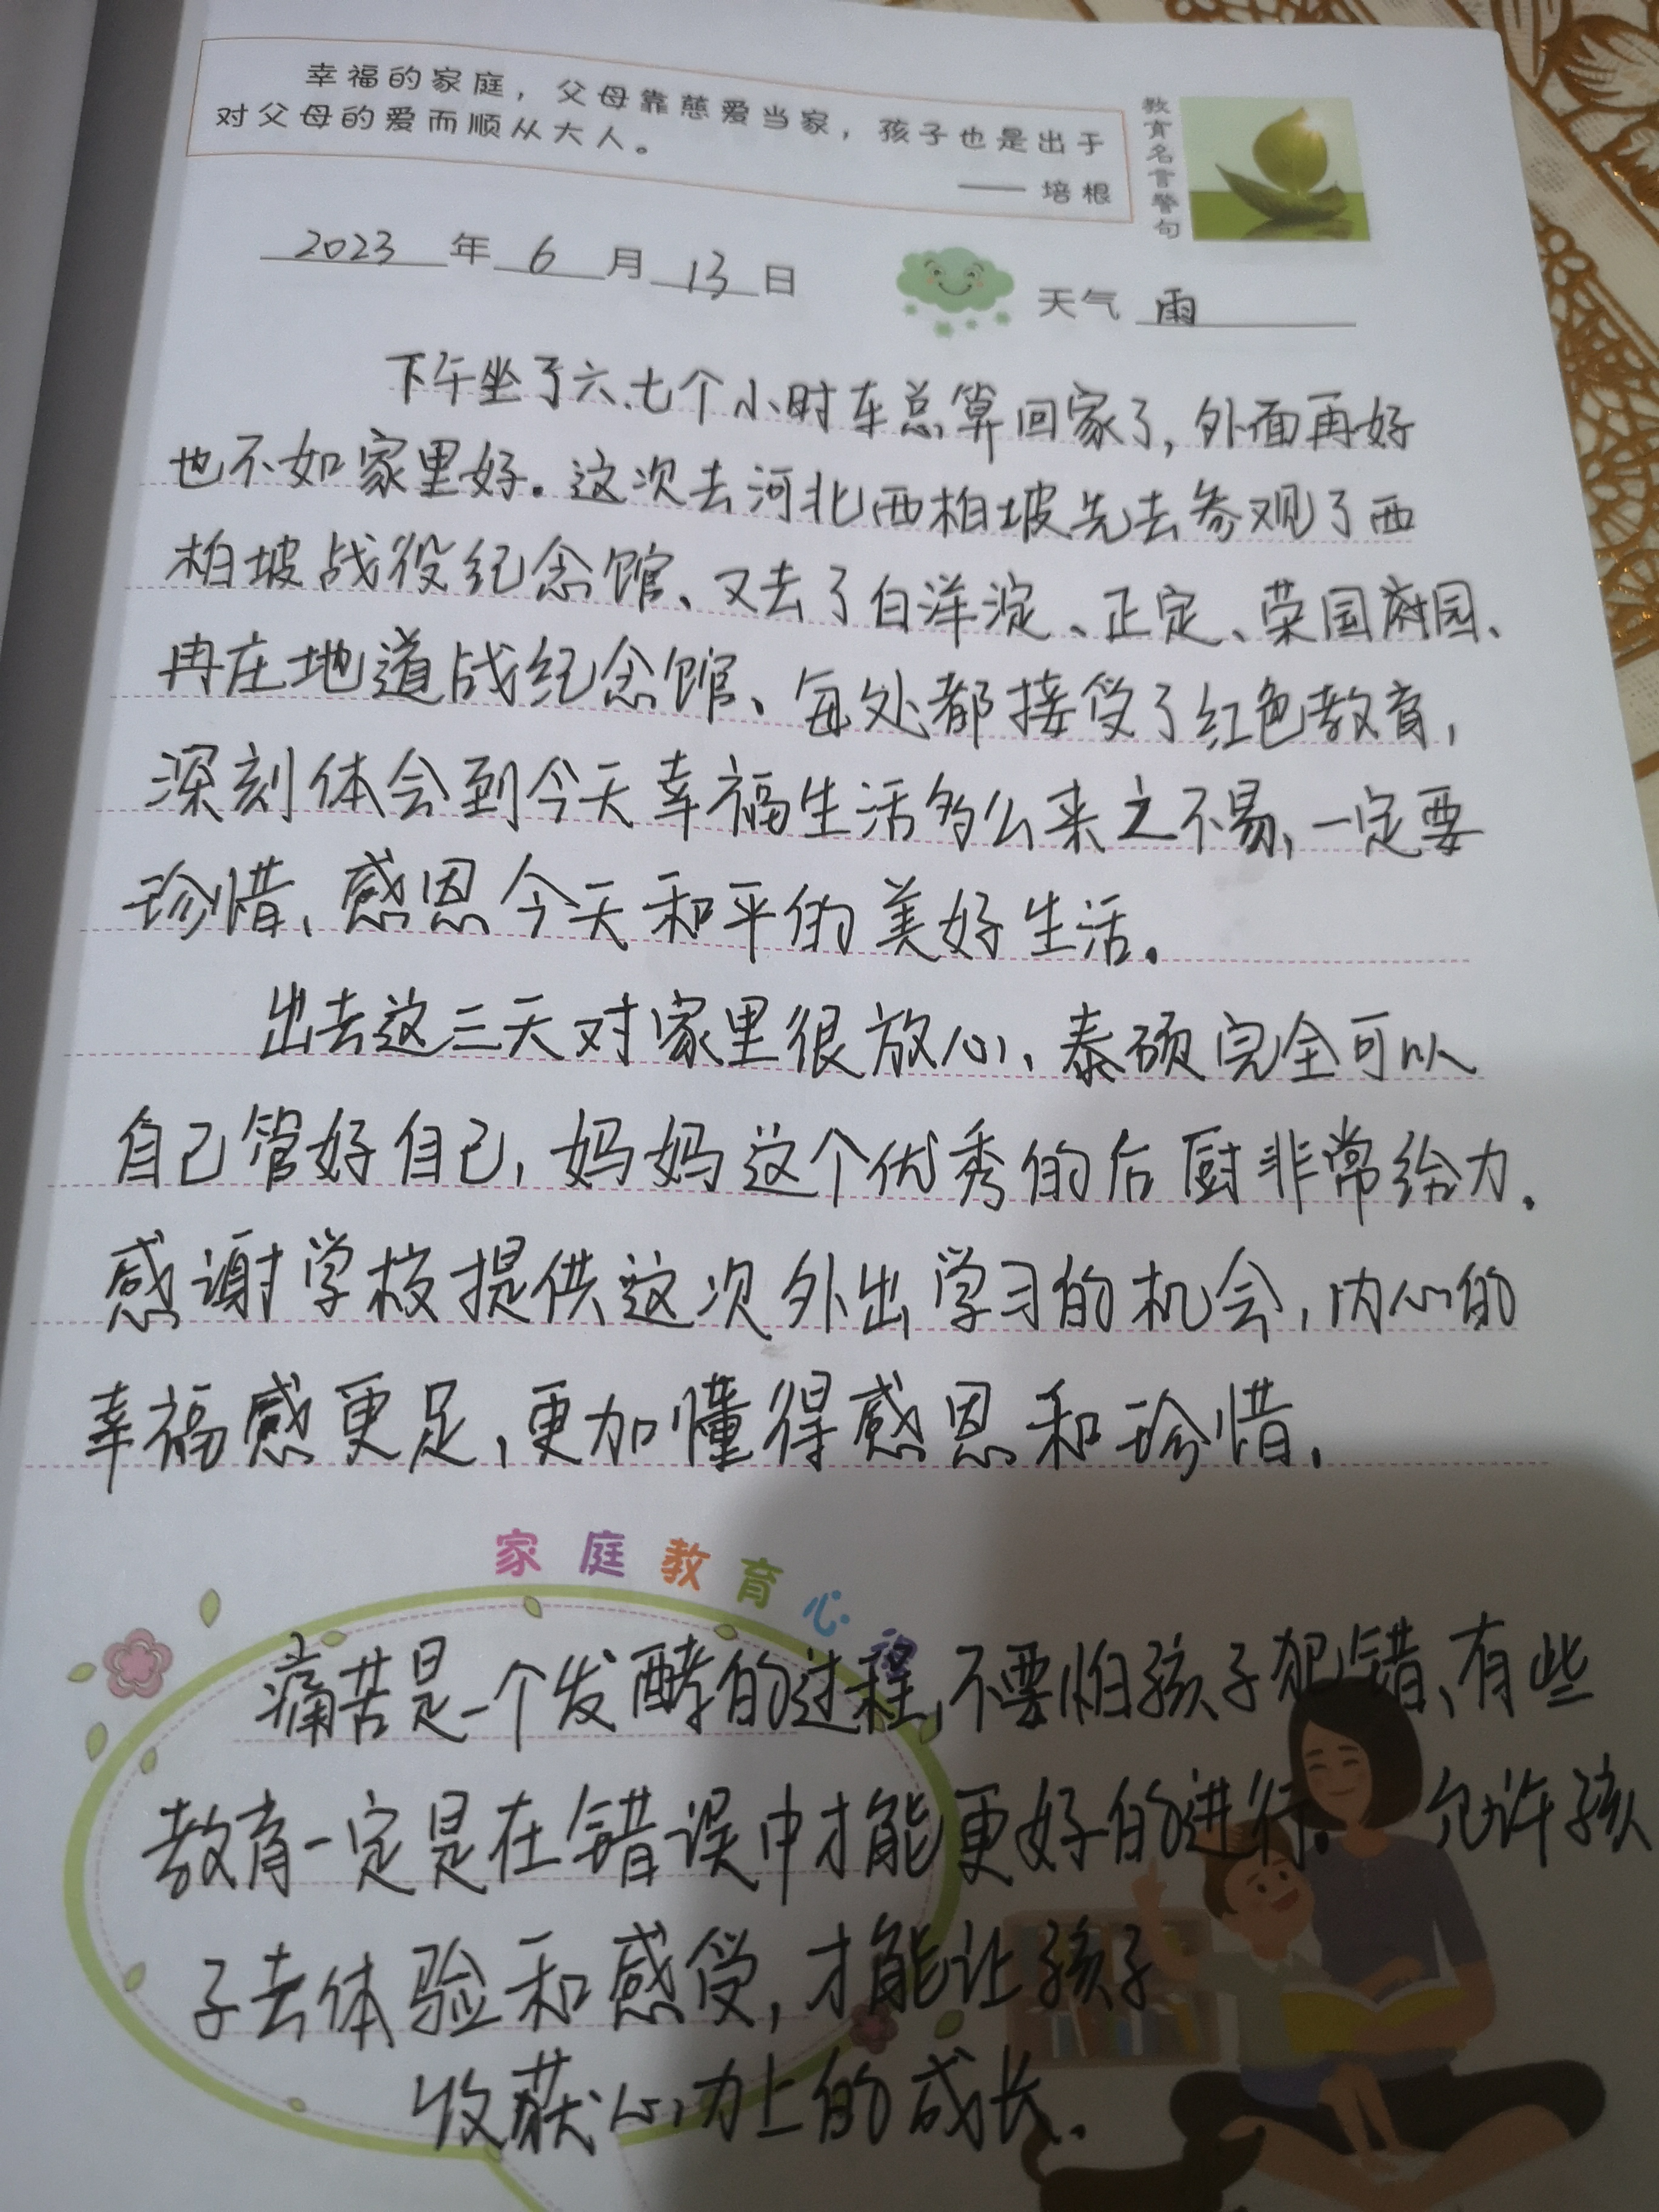 幸福的家庭，父母靠慈爱当家，孩子也是出于
对父母的爱而顺从大人。
—— 培根
教育名言警句
2023 年 6 月 13 日
天气 雨
下午坐了六.七个小时车总算回家了，外面再好
也不如家里好。这次去河北西柏坡先去参观了西
柏坡战役纪念馆、又去了白洋淀、正定、荣国府园、
冉庄地道战纪念馆、每处都接受了红色教育，
深刻体会到今天幸福生活多么来之不易，一定要
珍惜、感恩今天和平的美好生活。
出去这三天对家里很放心、泰硕完全可以
自己管好自己，妈妈这个优秀的后厨非常给力。
感谢学校提供这次外出学习的机会，内心的
幸福感更足，更加懂得感恩和珍惜。
家庭教育心得
痛苦是一个发酵的过程，不要怕孩子犯错、有些
教育一定是在错误中才能更好的进行。允许孩
子去体验和感受，才能让孩子
收获心力上的成长。